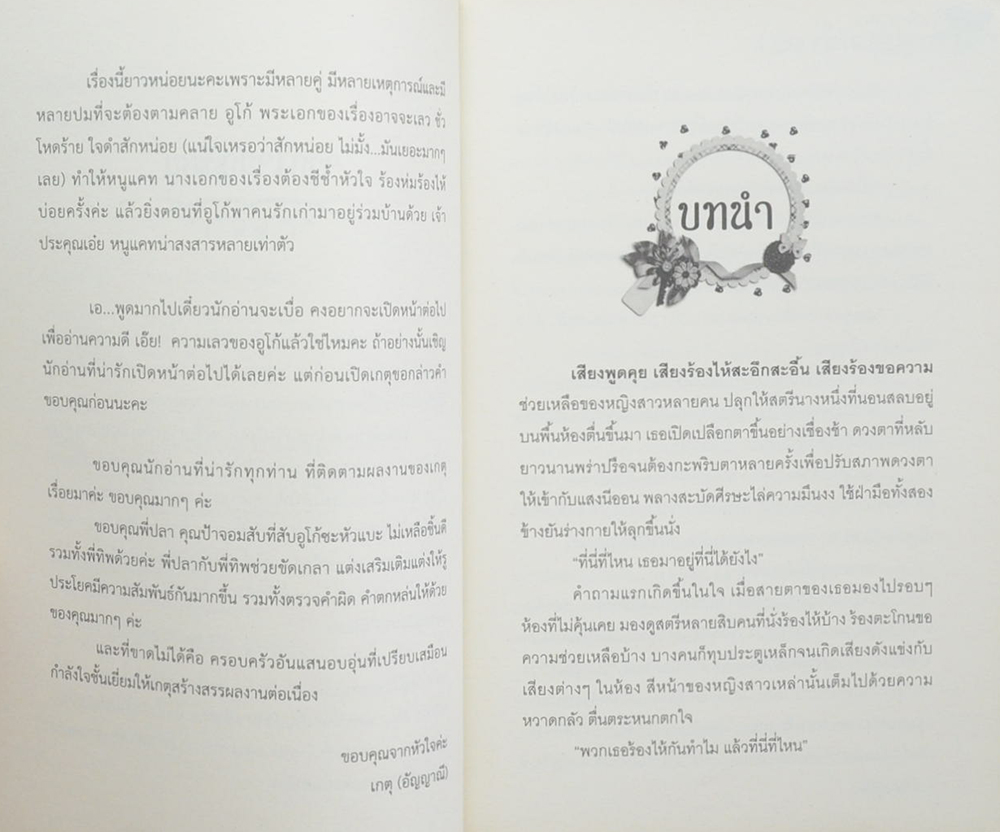 เรื่องนี้ยาวหน่อยนะคะเพราะมีหลายคู่ มีหลายเหตุการณ์และมี
หลายปมที่จะต้องตามคลาย อูโก้ พระเอกของเรื่องอาจจะเลว ชั่ว
โหดร้าย ใจดำสักหน่อย (แน่ใจเหรอว่าสักหน่อย ไม่มั้ง...มันเยอะมากๆ
เลย) ทำให้หนูแคท นางเอกของเรื่องต้องชีช้ำหัวใจ ร้องห่มร้องไห้
บ่อยครั้งค่ะ แล้วยิ่งตอนที่อูโก้พาคนรักเก่ามาอยู่ร่วมบ้านด้วย เจ้า
ประคุณเอ๋ย หนูแคทน่าสงสารหลายเท่าตัว
เอ...พูดมากไปเดี๋ยวนักอ่านจะเบื่อ คงอยากจะเปิดหน้าต่อไป
เพื่ออ่านความดี เอ๊ย! ความเลวของอูโก้แล้วใช่ไหมคะ ถ้าอย่างนั้นเชิญ
นักอ่านที่น่ารักเปิดหน้าต่อไปได้เลยค่ะ แต่ก่อนเปิดเกตุขอกล่าวคำ
ขอบคุณก่อนนะคะ
ขอบคุณนักอ่านที่น่ารักทุกท่าน ที่ติดตามผลงานของเกตุ
เรื่อยมาค่ะ ขอบคุณมากๆ ค่ะ
ขอบคุณพี่ปลา คุณป้าจอมสับที่สับอูโก้ซะหัวแบะ ไม่เหลือชิ้นดี
รวมทั้งพี่ทิพด้วยค่ะ พี่ปลากับพี่ทิพช่วยขัดเกลา แต่งเสริมเติมแต่งให้รู
ประโยคมีความสัมพันธ์กันมากขึ้น รวมทั้งตรวจคำผิด คำตกหล่นให้ด้วย
ของคุณมากๆ ค่ะ
และที่ขาดไม่ได้คือ ครอบครัวอันแสนอบอุ่นที่เปรียบเสมือน
กำลังใจชั้นเยี่ยมให้เกตุสร้างสรรผลงานต่อเนื่อง
ขอบคุณจากหัวใจค่ะ
เกตุ (อัญญาณี)
บทนำ
เสียงพูดคุย เสียงร้องไห้สะอึกสะอื้น เสียงร้องขอความ
ช่วยเหลือของหญิงสาวหลายคน ปลุกให้สตรีนางหนึ่งที่นอนสลบอยู่
บนพื้นห้องตื่นขึ้นมา เธอเปิดเปลือกตาขึ้นอย่างเชื่องช้า ดวงตาที่หลับ
ยาวนานพร่าปรือจนต้องกะพริบตาหลายครั้งเพื่อปรับสภาพดวงตา
ให้เข้ากับแสงนีออน พลางสะบัดศีรษะไล่ความมึนงง ใช้ฝ่ามือทั้งสอง
ข้างยันร่างกายให้ลุกขึ้นนั่ง
“ที่นี่ที่ไหน เธอมาอยู่ที่นี่ได้ยังไง”
คำถามแรกเกิดขึ้นในใจ เมื่อสายตาของเธอมองไปรอบๆ
ห้องที่ไม่คุ้นเคย มองดูสตรีหลายสิบคนที่นั่งร้องไห้บ้าง ร้องตะโกนขอ
ความช่วยเหลือบ้าง บางคนก็ทุบประตูเหล็กจนเกิดเสียงดังแข่งกับ
เสียงต่างๆ ในห้อง สีหน้าของหญิงสาวเหล่านั้นเต็มไปด้วยความ
หวาดกลัว ตื่นตระหนกตกใจ
“พวกเธอร้องไห้กันทำไม แล้วที่นี่ที่ไหน”